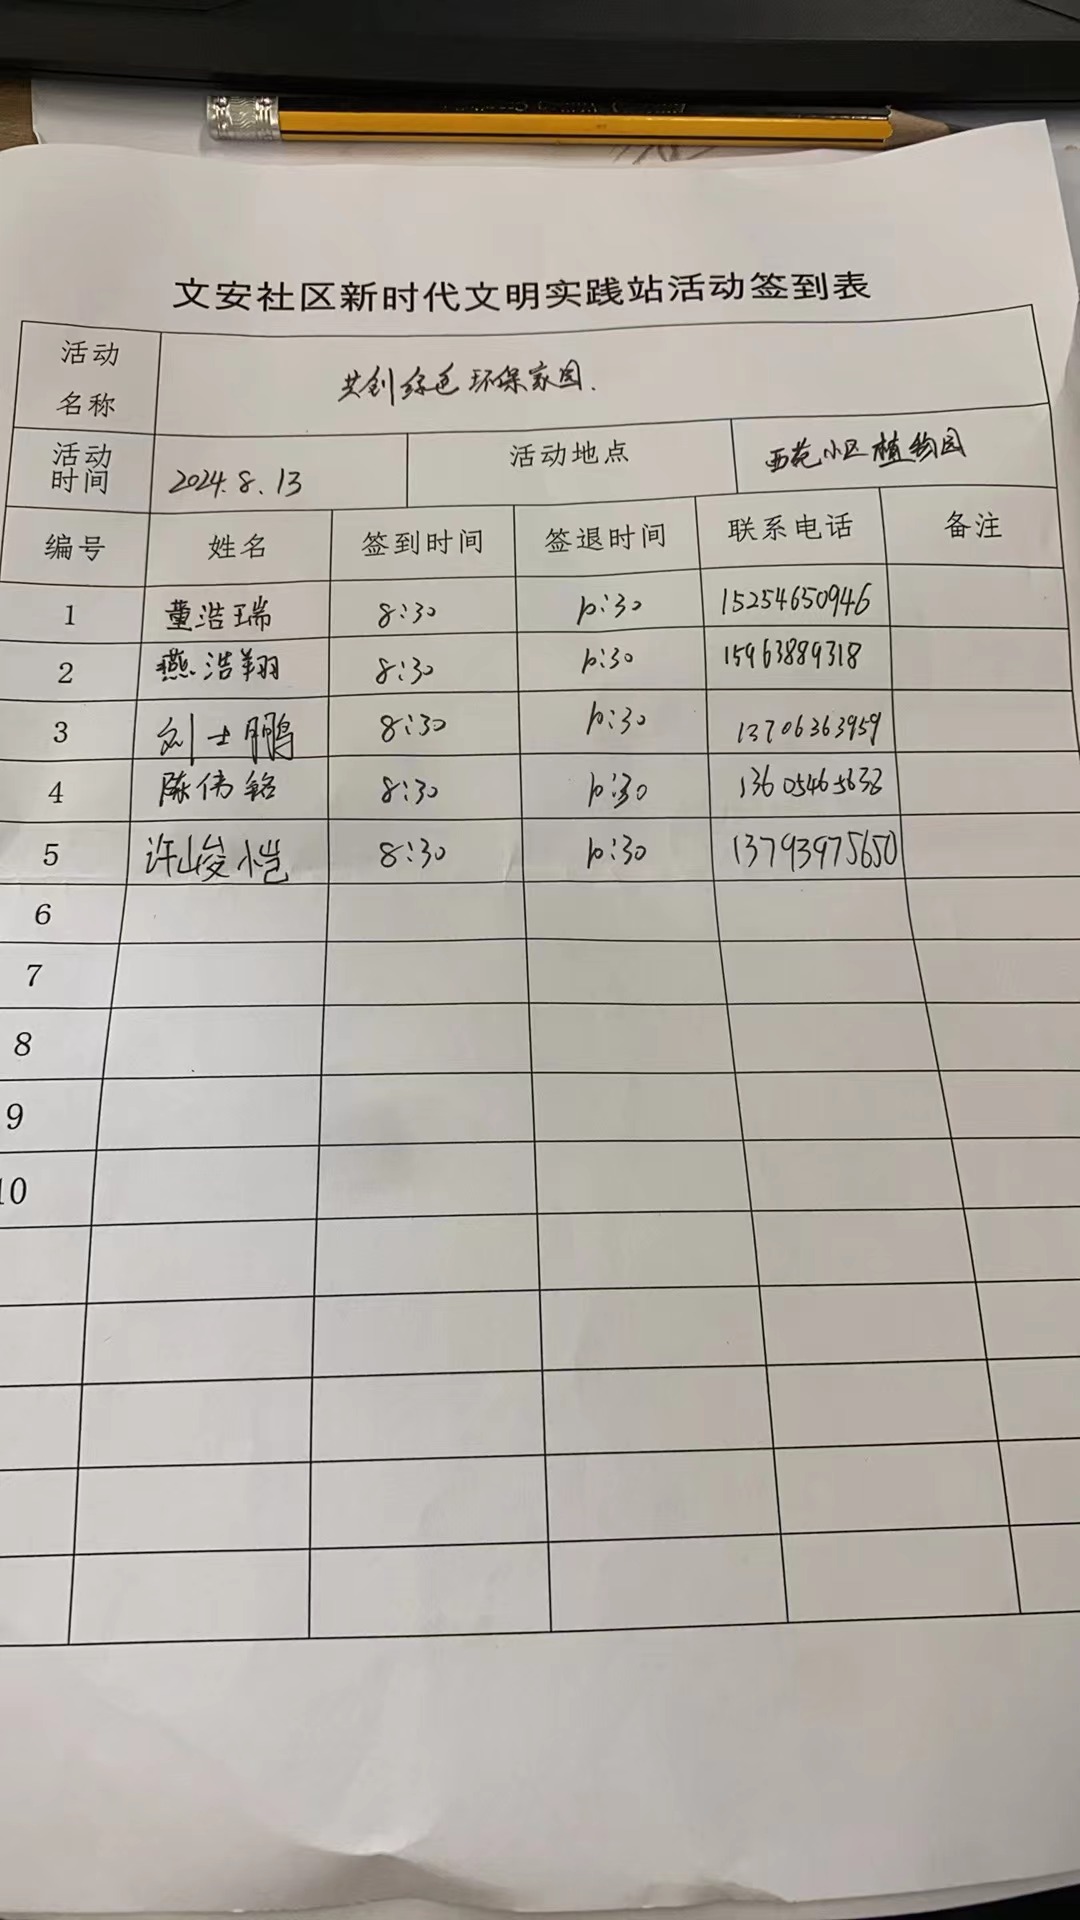 文安社区新时代文明实践站活动签到表
活动名称 共创绿色环保家园.
活动时间 2024.8.13 活动地点 西苑小区植物园
编号 姓名 签到时间 签退时间 联系电话 备注
1 董浩瑞 8:30 10:30 15254650946
2 燕浩翔 8:30 10:30 15963889318
3 刘士鹏 8:30 10:30 13706363959
4 陈伟铭 8:30 10:30 13605465638
5 许峻恺 8:30 10:30 13793975650
6
7
8
9
10